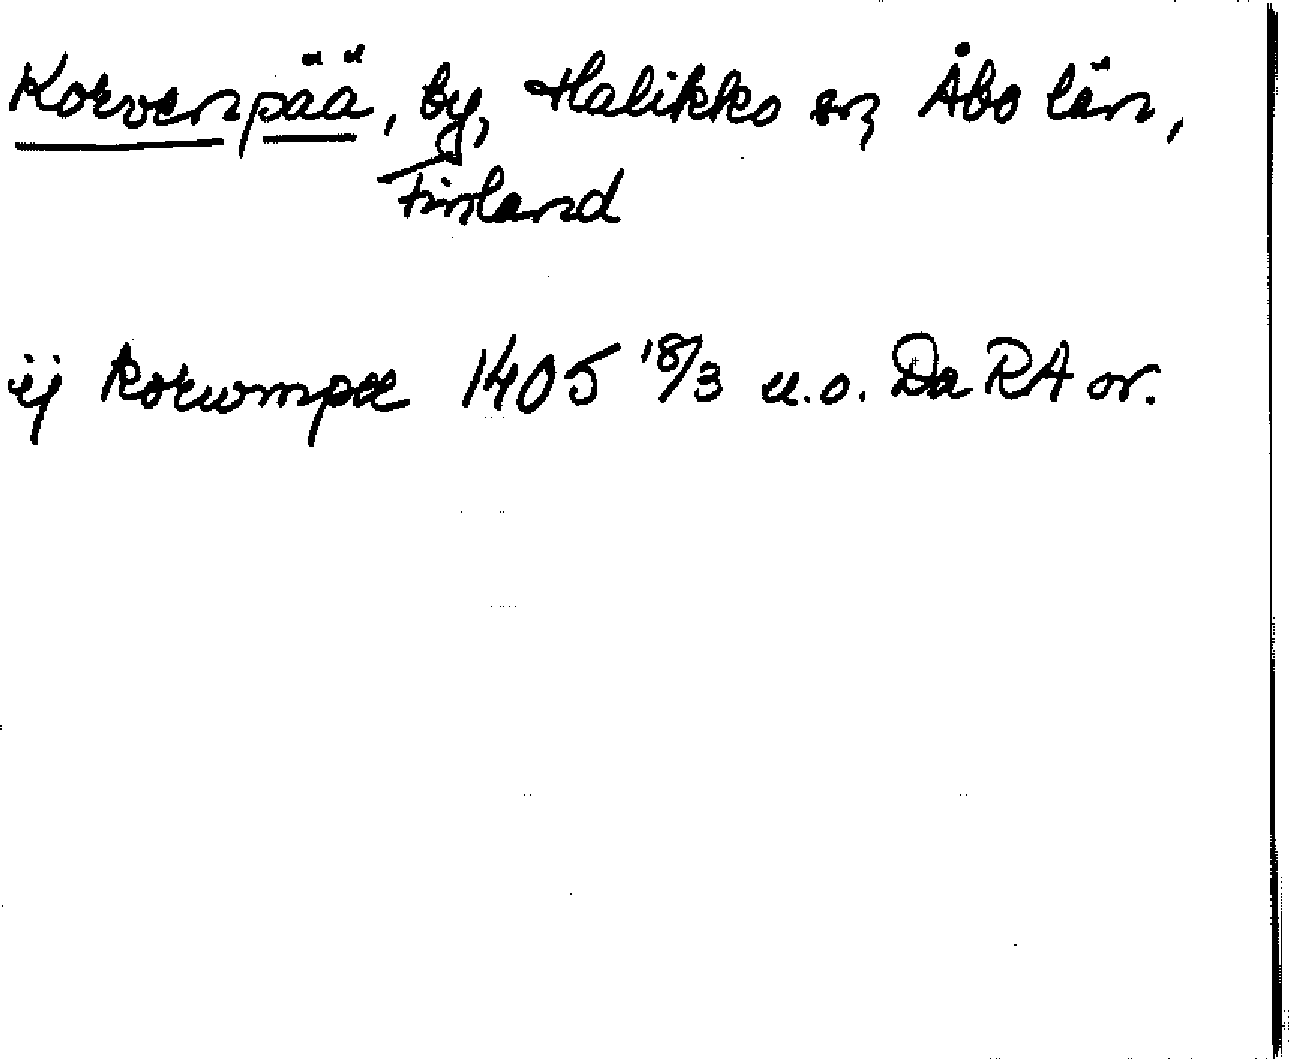 Korvenpää, by, Halikko sn, Åbo län,
Finland
ij Korwmpæ 1405 18/3 u.o. Da RA or.